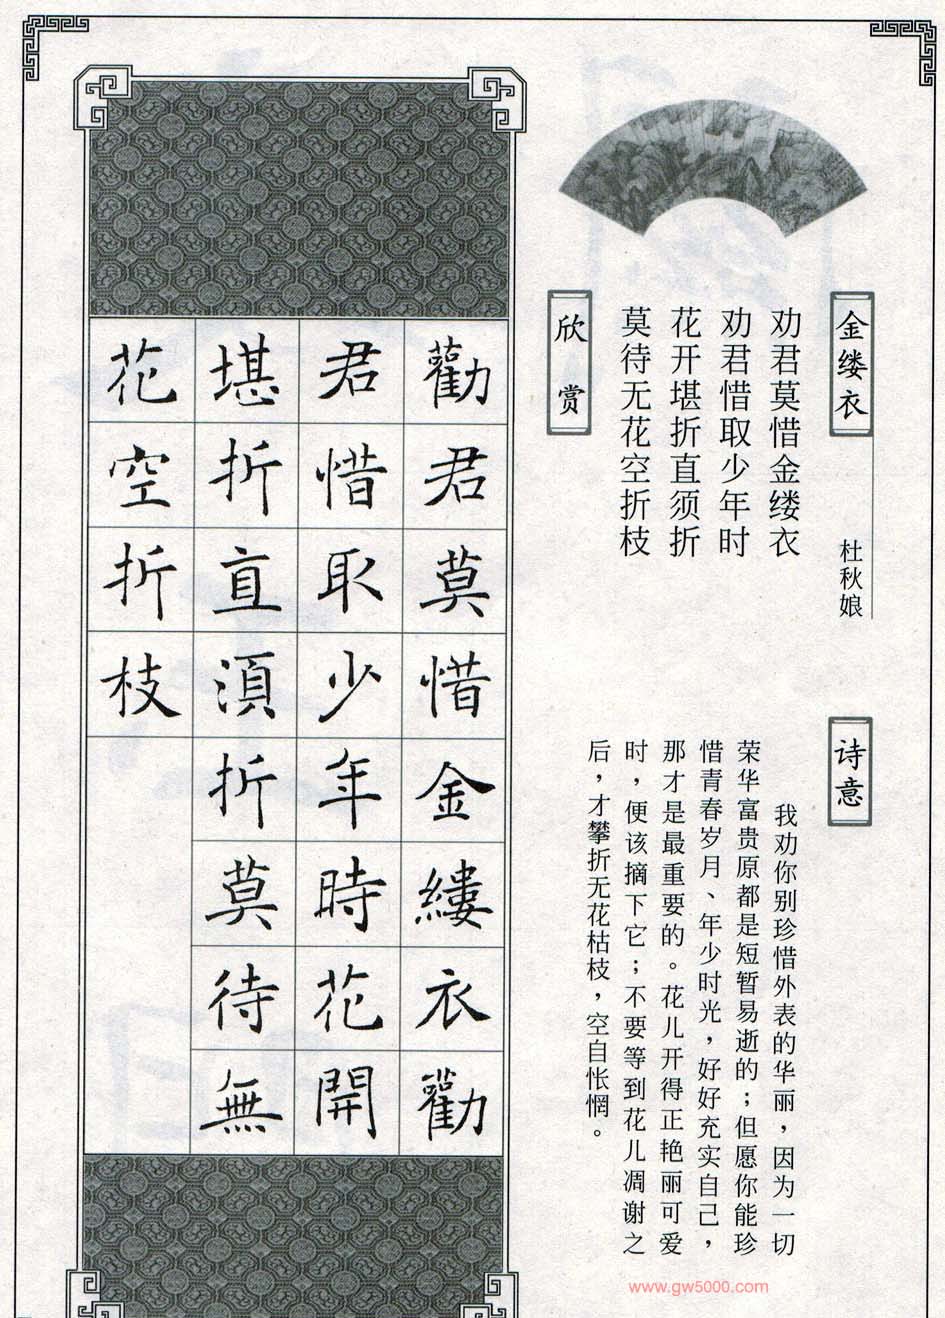 金缕衣
杜秋娘
劝君莫惜金缕衣
劝君惜取少年时
花开堪折直须折
莫待无花空折枝
欣赏
诗意
我劝你别珍惜外表的华丽，因为一切
荣华富贵原都是短暂易逝的；但愿你能珍
惜青春岁月、年少时光，好好充实自己，
那才是最重要的。花儿开得正艳丽可爱
时，便该摘下它；不要等到花儿凋谢之
后，才攀折无花枯枝，空自怅惘。
勸君莫惜金縷衣勸
君惜取少年時花開
堪折直須折莫待無
花空折枝
www.gw5000.com